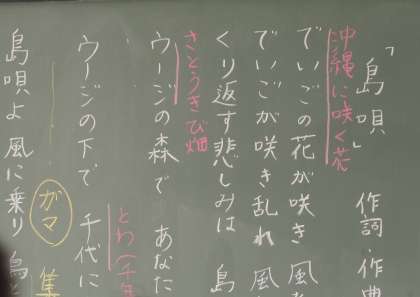 「島唄」 作詞・作曲
沖縄に咲く花
でいごの花が咲き 風
でいごが咲き乱れ 風
くり返す悲しみは 島
さとうきび畑
ウージの森で あなた
とわ 千年
ウージの下で 千代に
ガマ 集
島唄よ 風に乗り 鳥